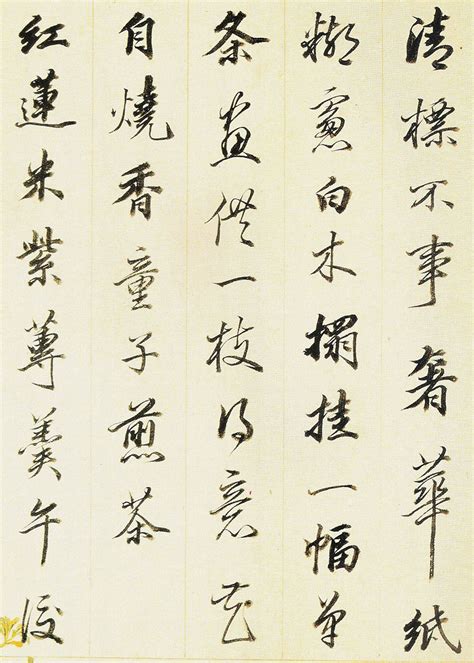 清標不事奢華紙
糊窓白木榻挂一幅单
条畫供一枝得意花
自燒香童子煎茶
紅蓮米紫蓴羹午後